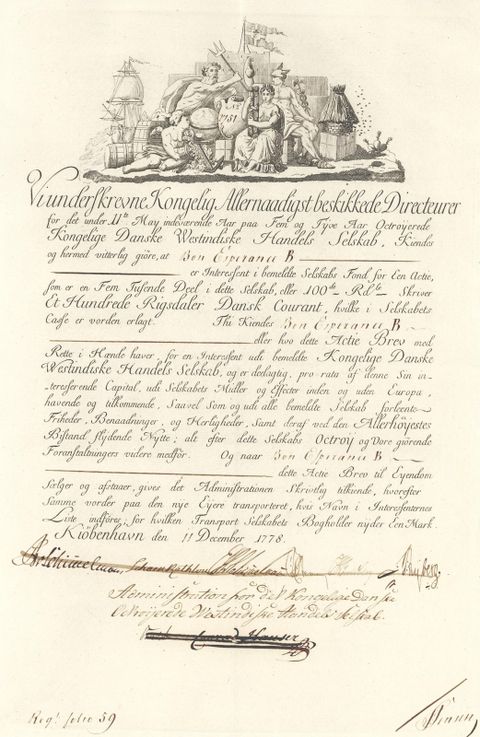 No
1751
Vi underskrevne Kongelig Allernaadigst beskikkede Directeurer
for det under 11te May indeværende Aar paa Fem og Tyve Aar Octroyerede
Kongelige Danske Westindiske Handels Selskab, Kiendes
og hermed vitterlig giöre, at Bon Esperance B
er Interesent i bemeldte Selskabs Fond for Een Actie,
som er en Fem Tusende Deel i dette Selskab, eller 100de Rdlr Skriver
Et Hundrede Rigsdaler Dansk Courant, hvilke i Selskabets
Casse er vorden erlagt. Thi Kiendes Bon Esperance B
eller hvo dette Actie Brev med
Rette i Hænde haver, for en Interesent udi bemeldte Kongelige Danske
Westindiske Handels Selskab, og er deelagtig, pro rata af denne Sin in-
teresserende Capital, udi Selskabets Midler og Effecter inden og uden Europa,
havende og tilkommende, Saavel Som og udi alle bemeldte Selskab forleente
Friheder, Benaadninger, og Herligheder, Samt deraf ved den Allerhöyestes
Bistand flydende Nytte; alt efter dette Selskabs Octroy og Vore giörende
Foranstaltninger videre medför. Og naar Bon Esperance B
dette Actie Brev til Eyendom
Sælger og afstaaer, gives det Administrationen Skrivtlig tilkiende, hvorefter
Samme vorder paa den nye Eyere transporteret, hvis Navn i Interesenternes
Liste indföres, for hvilken Transport Selskabets Bogholder nyder Een Mark.
Kiöbenhavn den 11 December 1778.
Schimmelmann
Administration for det Kongelige Danske
octrojerede Westindiske Handels Selskab.
Regt. folio 59